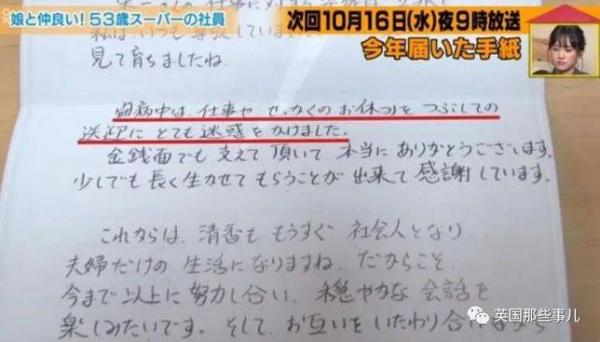 "娘と仲良い! 53歳スーパーの社員
次回10月16日(水)夜9時放送
今年届いた手紙
見て育ちましたね。
闘病中は、仕事や せっかくの お休みを つぶしての
送迎に とても迷惑を かけました。
金銭面でも 支えて 頂いて 本当に ありがとうございます。
少しでも 長く 生かせて もらうことが 出来て 感謝しています。
これからは、清香も もうすぐ 社会人となり
夫婦だけの 生活に なりますね。だからこそ、
今まで 以上に 努力し合い、穏やかな 会話を
楽しみたいです。そして、お互いを いたわり 合いながら
英国那些事儿